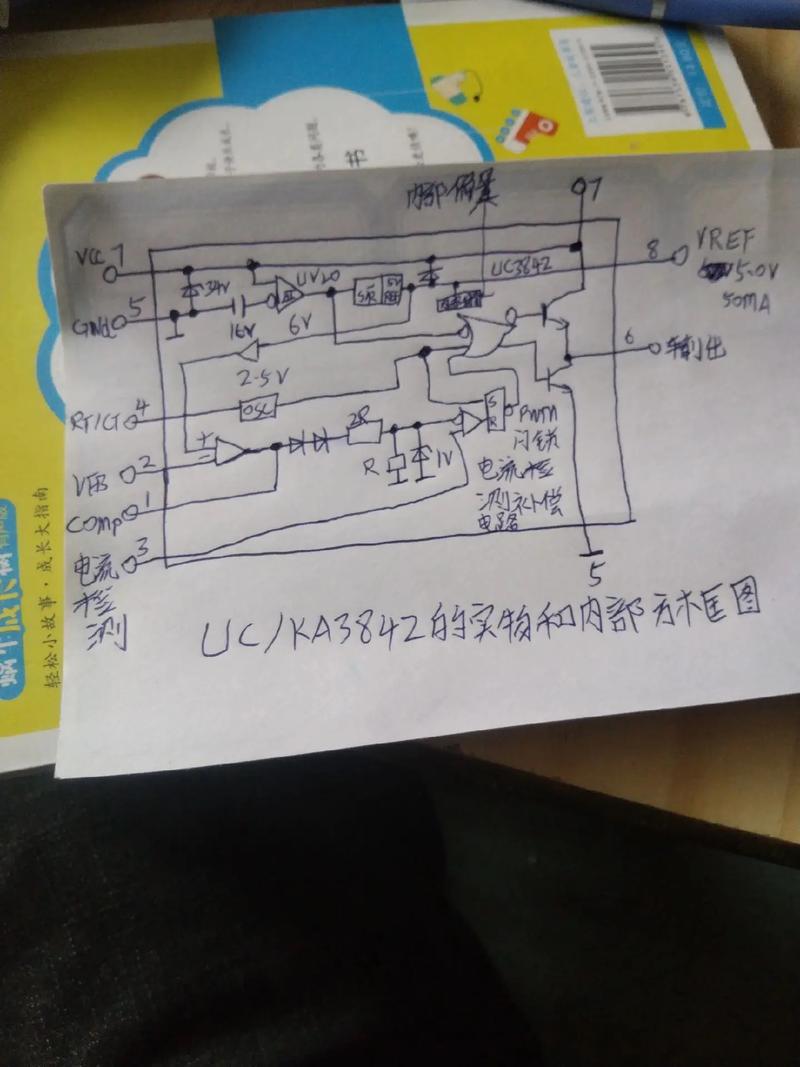 书
内部偏置
7
VCC 7
34V
UVLO
S/R
5V
REF
UC3842
8
VREF
5.0V
50MA
GNd 5
16V
6V
2.5V
6
RT/CT 4
OSC
2R
S
R
PWM
闩锁
VFB 2
R
1V
电流检
测补偿
电路
Comp 1
电流 3
检
测
5
UC/KA3842的实物和内部方框图
蜗牛成长树 有声版
轻松小故事·成长大指南